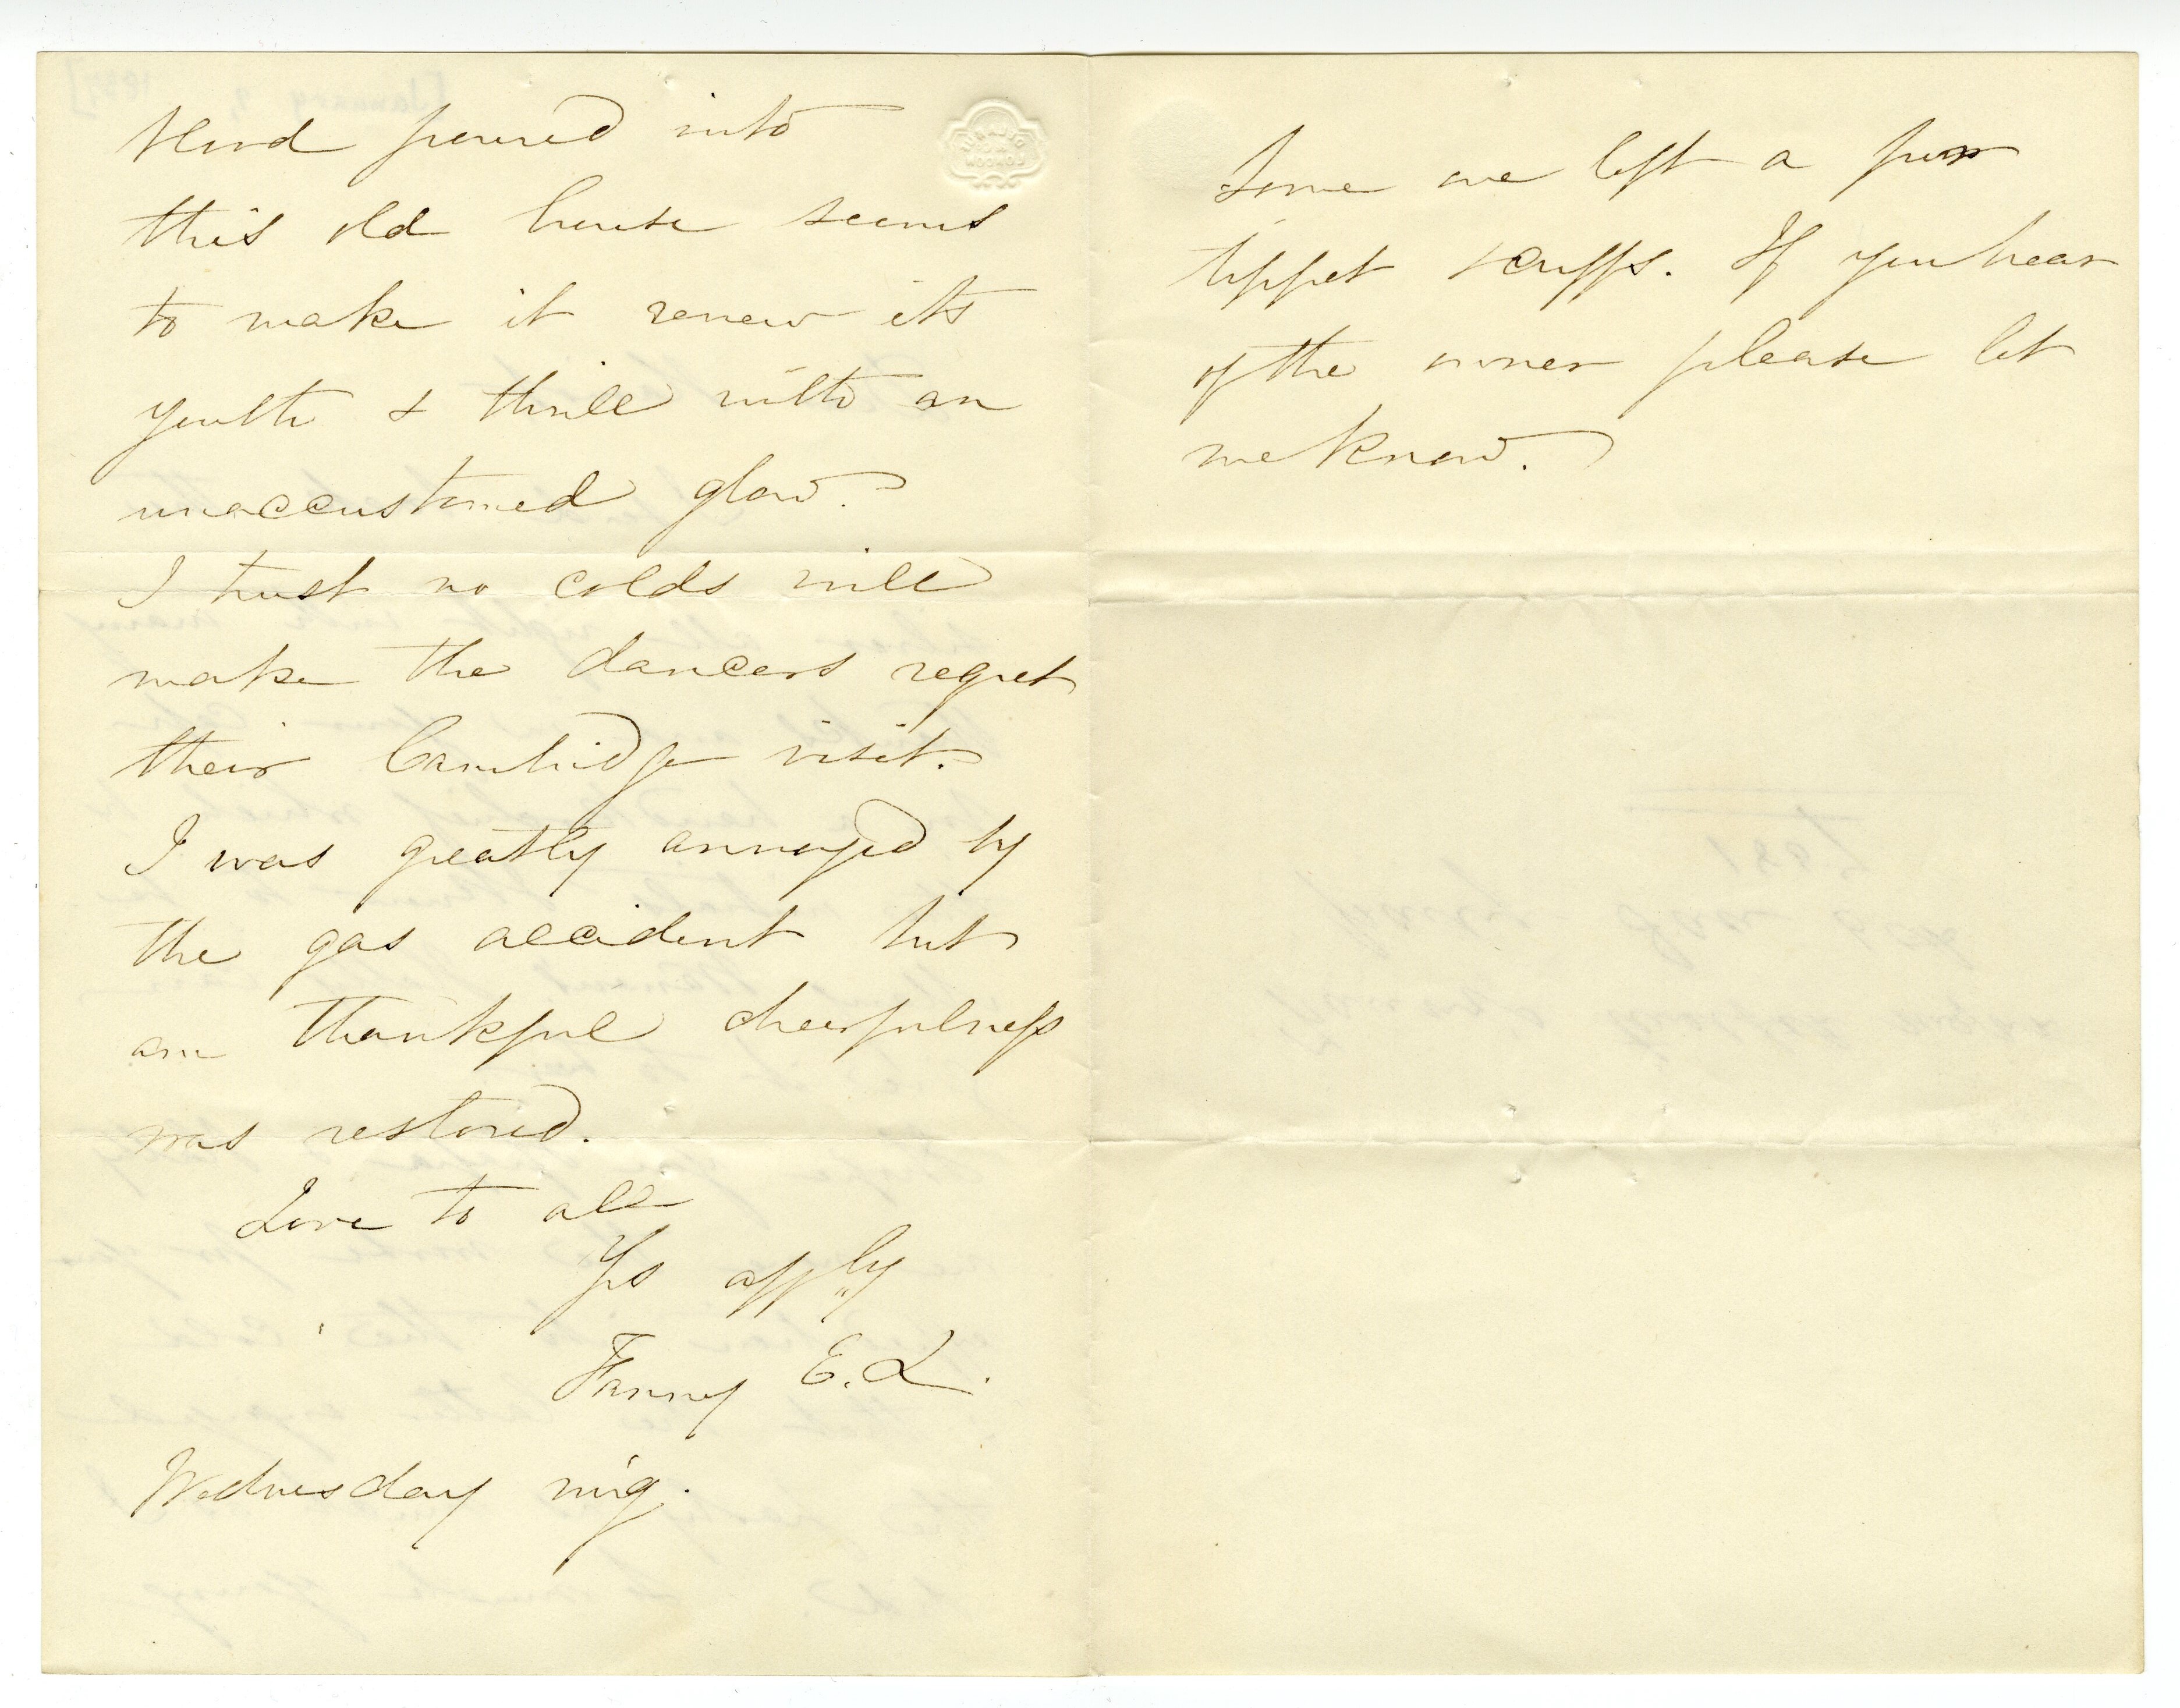 blood poured into
this old house seems
to make it renew its
youth & thrill with an
unaccustomed glow.
I trust no colds will
make the dancers regret
their Cambridge visit.
I was greatly annoyed by
the gas accident but
am thankful cheerfulness
was restored.
Love to all
Yrs affly
Fanny E. L.
Wednesday m'g.
Some one left a fur
tippet & cuffs. If you hear
of the owner please let
me know.